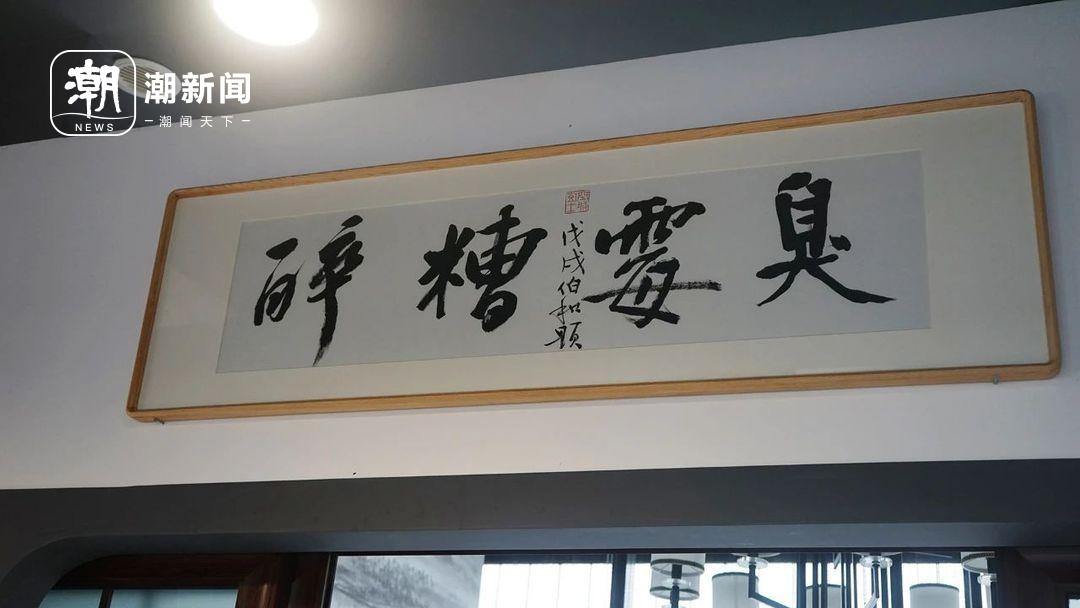 潮
NEWS
潮新闻
潮闻天下
臭霉糟醉
戊戌伯和题